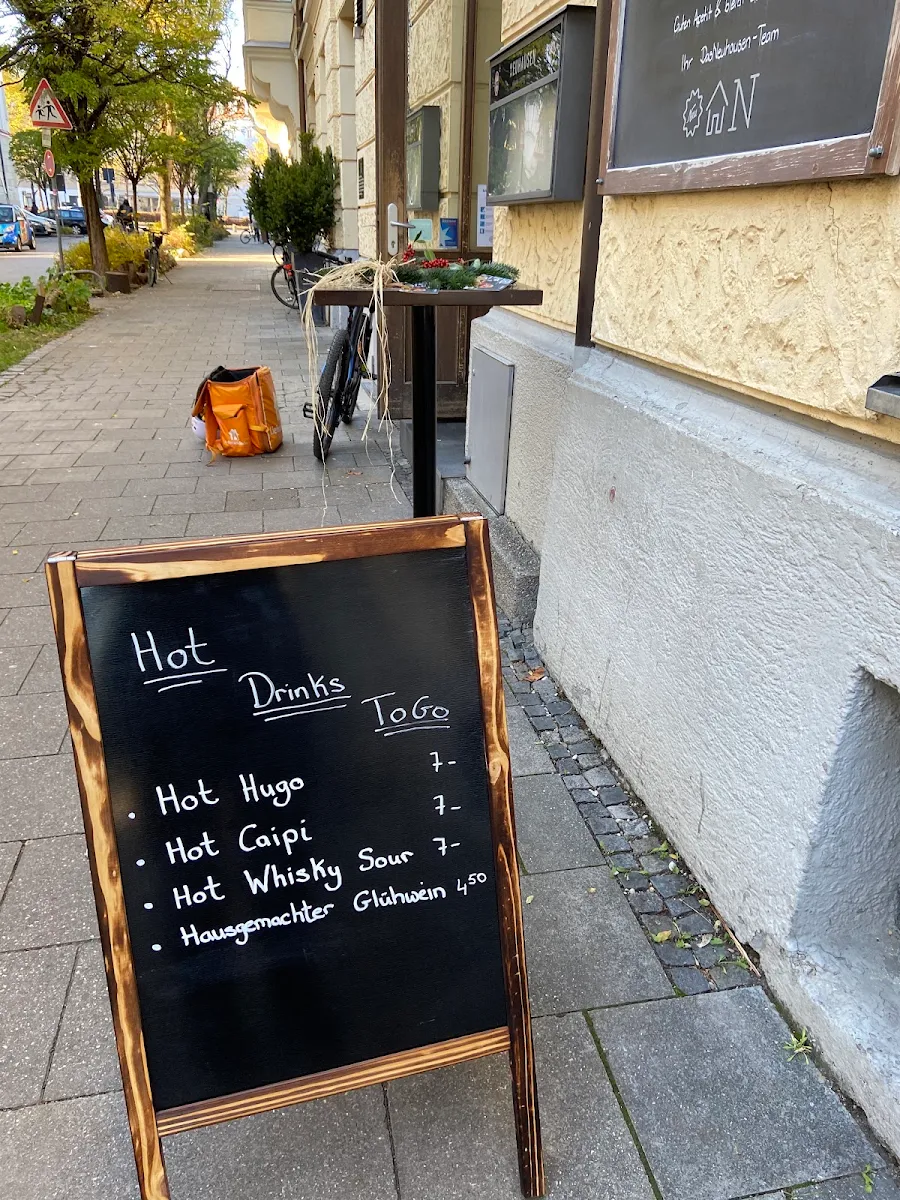 Guten Apetit & bleibt
Ihr DasNeuhausen-Team
N
NEUHAUSEN
Hot
Drinks
ToGo
• Hot Hugo 7-
• Hot Caipi 7-
• Hot Whisky Sour 7-
• Hausgemachter Glühwein 4⁵⁰